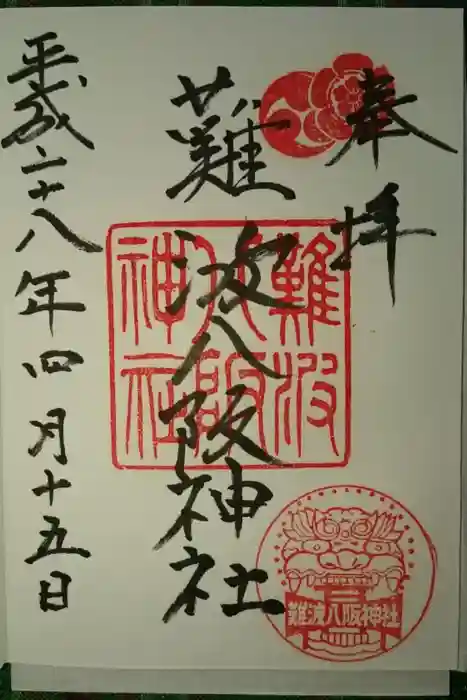 奉拝
難波八阪神社
平成二十八年四月十五日
難波八阪神社
難波八阪神社